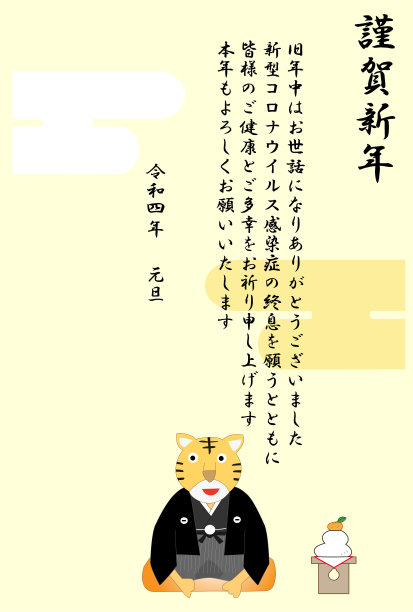 謹賀新年
旧年中はお世話になりありがとうございました
新型コロナウイルス感染症の終息を願うとともに
皆様のご健康とご多幸をお祈り申し上げます
本年もよろしくお願いいたします
令和四年 元旦